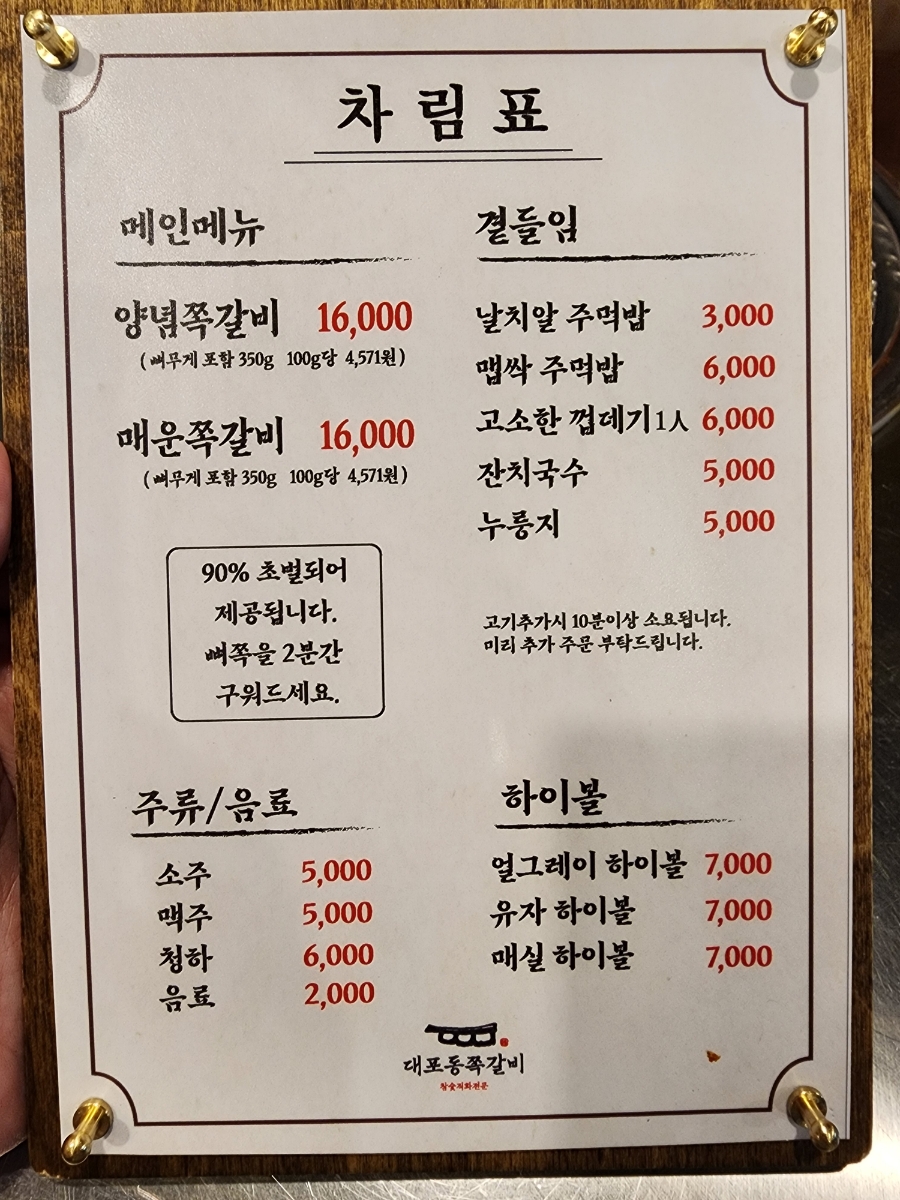 차림표
메인메뉴
양념쪽갈비 16,000
(뼈무게 포함 350g 100g당 4,571원)
매운쪽갈비 16,000
(뼈무게 포함 350g 100g당 4,571원)
90% 초벌되어
제공됩니다.
뼈쪽을 2분간
구워드세요.
곁들임
날치알 주먹밥 3,000
맵싹 주먹밥 6,000
고소한 껍데기 1人 6,000
잔치국수 5,000
누룽지 5,000
고기추가시 10분이상 소요됩니다.
미리 추가 주문 부탁드립니다.
주류/음료
소주 5,000
맥주 5,000
청하 6,000
음료 2,000
하이볼
얼그레이 하이볼 7,000
유자 하이볼 7,000
매실 하이볼 7,000
대포동쪽갈비
참숯직화전문